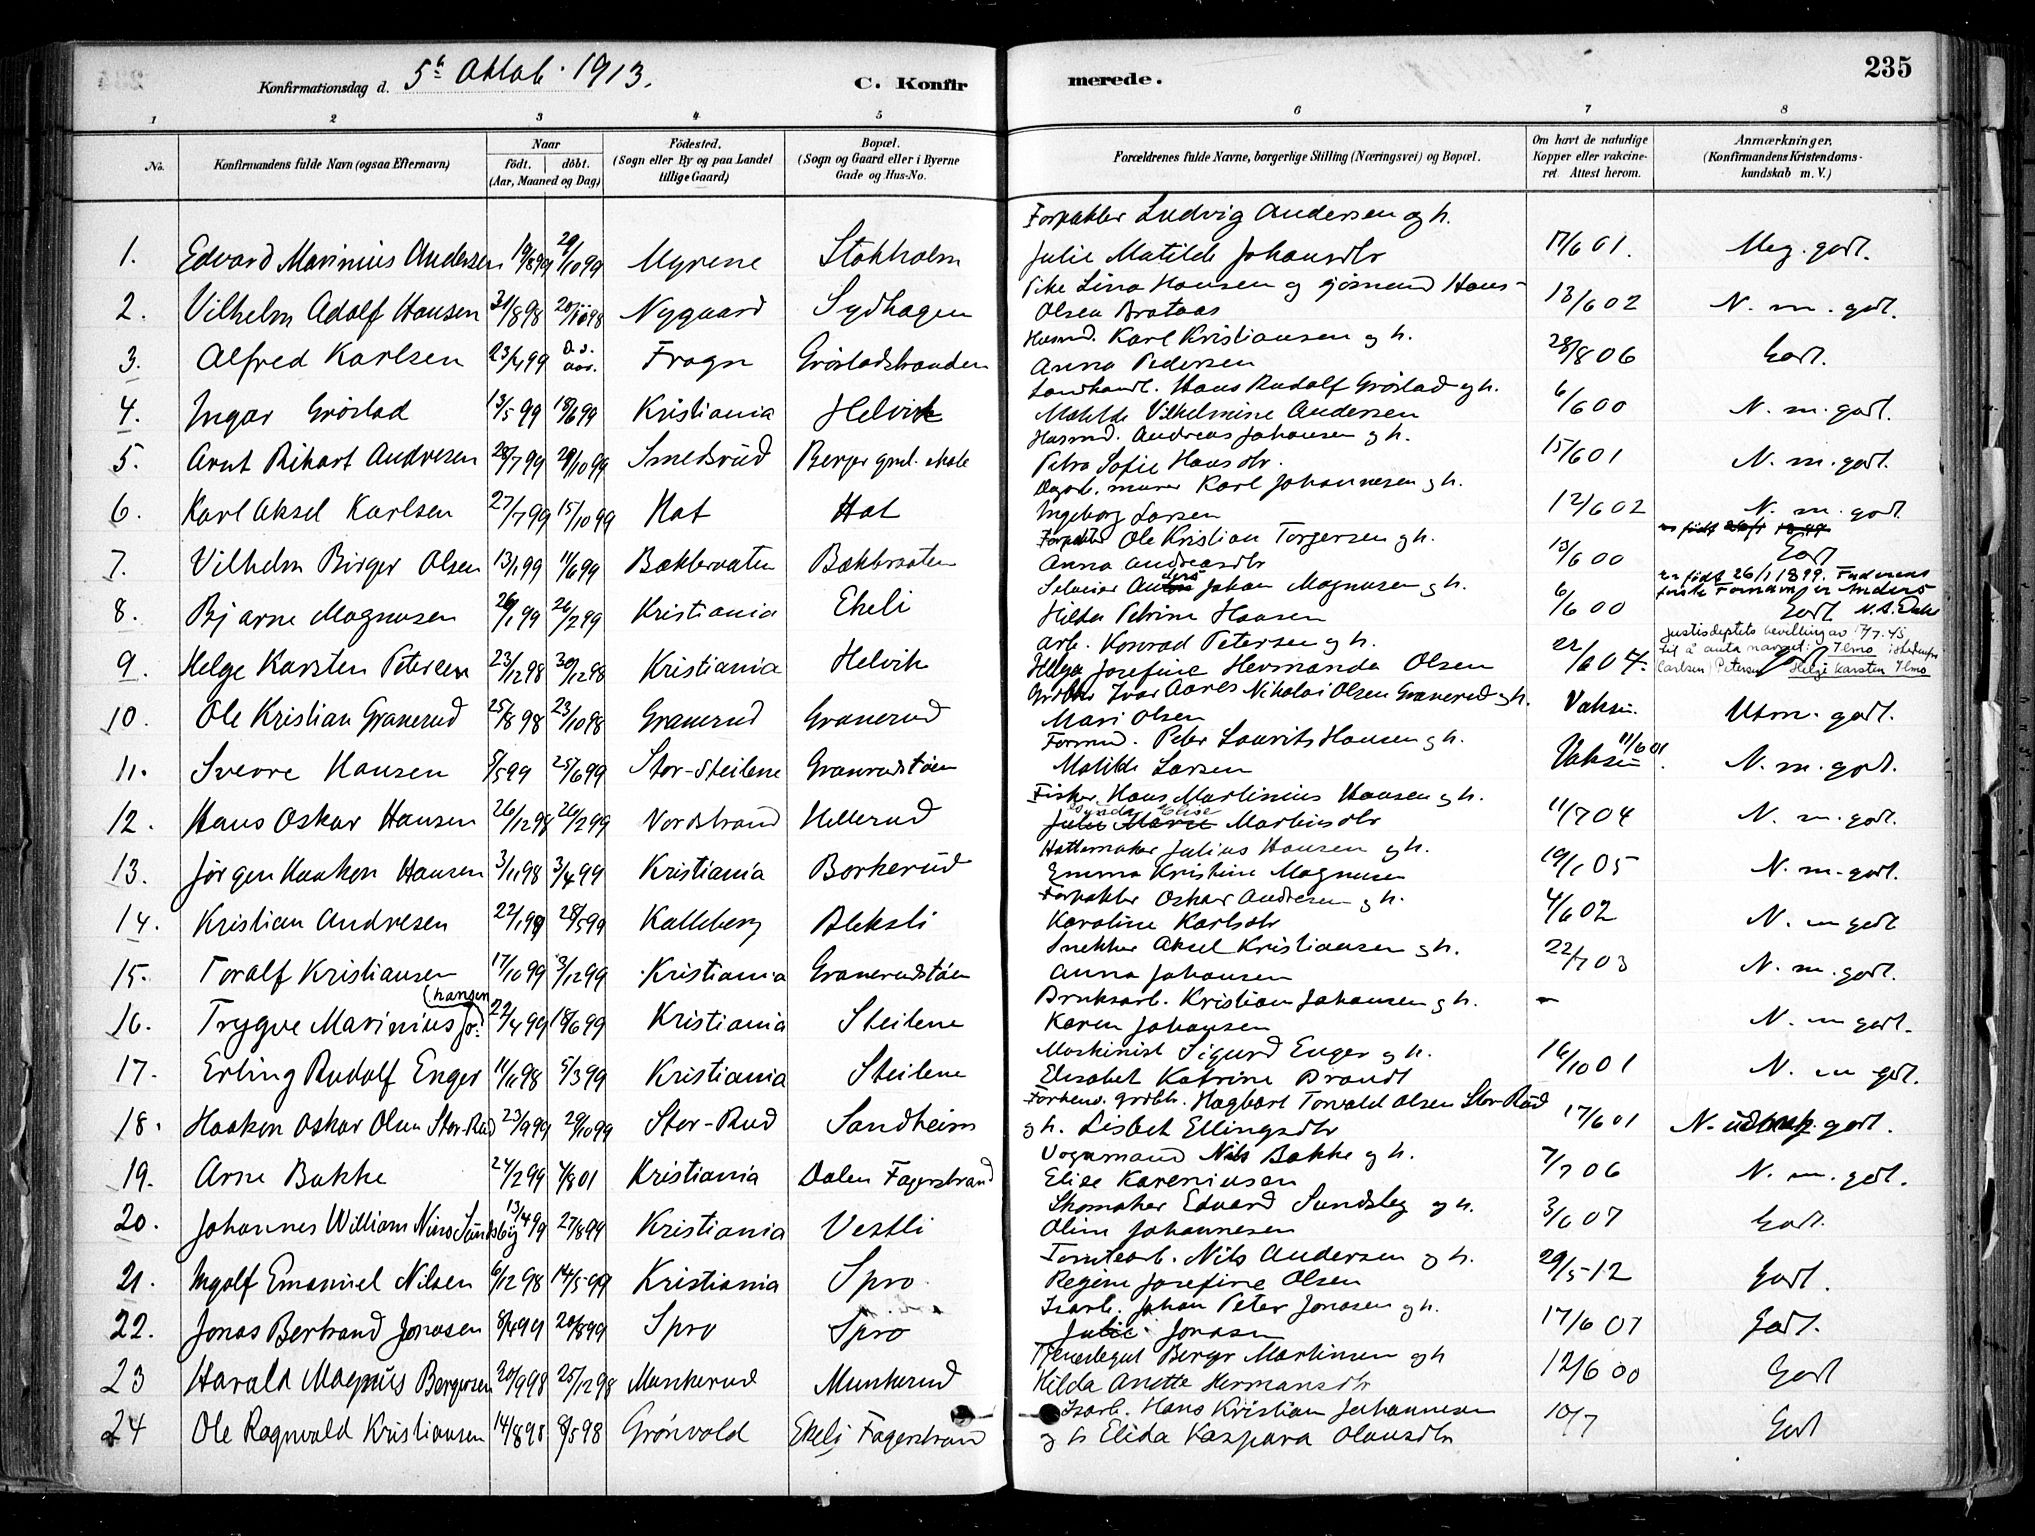 Konfirmationsdag d. 5t Oktob. 1913. C. Konfirmerede. 235
1 2 3 4 5 6 7 8
No. Konfirmandens fulde Navn (ogsaa Efternavn) Naar født. døbt. (Aar, Maaned og Dag) Fødested. (Sogn eller By og paa Landet tillige Gaard) Bopæl. (Sogn og Gaard eller i Byerne Gade og Hus-No. Forældrenes fulde Navne, borgerlige Stilling (Næringsvei) og Bopæl. Om havt de naturlige Kopper eller vakcineret. Attest herom. Anmærkninger. (Konfirmandens Kristendomskundskab m. V.)
Forpakter Ludvig Andersen og h.
1. Edvard Marinius Andersen 19/8 99 29/10 99 Myrene Stokholm Julie Matilde Johansdtr 17/6 01. Meg. godt.
Pike Lina Hansen og gjømand Hans
2. Vilhelm Adolf Hansen 31/8 98 20/10 98 Nygaard Sydhagen Olsen Brataas 13/6 02 N. m. godt.
Husmd. Karl Kristiansen og h.
3. Alfred Karlsen 23/4 99 d. s. aar. Frogn Grøstadstranden Anna Pedersen 28/8 06 Godt.
Landhandl. Hans Rudolf Grøstad og h.
4. Ingar Grøstad 13/5 99 18/6 99 Kristiania Helvik Matilde Vilhelmine Andersen 6/6 00 N. m. godt.
Husmd. Andreas Johansen og h.
5. Arnt Rikart Andresen 28/7 99 29/10 99 Smedsrud Berger gml. skole Petra Sofie Hansdtr. 15/6 01 N. m. godt.
Dagarb. murer Karl Johannesen og h.
6. Karl Aksel Karlsen 27/7 99 15/10 99 Hat Hat Ingeborg Larsen 12/6 02 N. m. godt.
Forpakter Ole Kristian Torgersen og h. er født 26/1 1899
7. Vilhelm Birger Olsen 13/1 99 11/6 99 Bækkevaten Bækkevaaten Anna Andreasdtr 13/6 00 Godt
Johan Magnusen og h. Er født 26/1 1899. Faderens første Fornavn er Anders
8. Bjarne Magnusen 26/1 99 26/2 99 Kristiania Ekeli Hilda Petrine Hansen 6/6 00 Godt
Arb. Konrad Petersen og h. Justisdeptets bevilling av 17/7.45 til å anta navnet: Ilmo istedenfor
9. Helge Karsten Petersen 23/12 98 30/12 98 Kristiania Helvik Helga Josefine Hermanda Olsen 22/6 07. Carlsen) Petersen Godt Helge Karsten Ilmo
Grdbr. Ivar Aares Nikolai Olsen Granerud og h.
10. Ole Kristian Granerud 25/8 98 23/10 98 Granerud Granerud Mari Olsen Vaksi. Utm. godt.
Formd. Peter Laurits Hansen og h.
11. Sverre Hansen 8/5 99 25/6 99 Stor-Steilene Granrudstøen Matilde Larsen Vaksi 11/6 01. N. m. godt.
Fisker Hans Martinius Hansen og h.
12. Hans Oskar Hansen 26/12 98 26/2 99 Nordstrand Hellerud Julie Marie Martinsdtr 11/7 04 N. m. godt.
Hattemaker Julius Hansen og h.
13. Jørgen Haakon Hansen 3/11 98 3/4 99 Kristiania Borkerud Emma Kristine Magnusen 19/1 05 N. m. godt.
Forpakter Oskar Andresen og h.
14. Kristian Andresen 22/1 99 28/5 99 Kalleberg Bleksli Karoline Karlsdtr 4/6 02 N. m godt
Snekker Aksel Kristiansen og h.
15. Toralf Kristiansen 17/10 99 3/12 99 Kristiania Granerudstøen Anna Johansen 22/7 03 N. m. godt.
Bruksarb. Kristian Johansen og h.
16. Trygve Marinius Jo- (hansen) 22/4 99 18/6 99 Kristiania Steilene Karen Johansen — N. m godt.
Maskinist Sigurd Enger og h.
17. Erling Rudolf Enger 11/11 98 5/3 99 Kristiania Steilene Elisabet Katrine Brandt 16/10 01 N. m godt.
Forhenv. grdbr. Hagbart Torvald Olsen Stor-Rud
18. Haakon Oskar Olsen Stor-Rud 23/9 99 29/10 99 Stor-Rud Sandheim og h. Lisbet Ellingsdtr 17/6 01 N. godt.
Vognmand Nils Bakke og h.
19. Arne Bakke 24/2 99 4/8 01 Kristiania Dalen Fagerstrand Elise Kareniusen 7/7 06 N. m. godt.
Skomaker Edvard Sundsby og h.
20. Johannes William Nius Sundsby 13/4 99 27/8 99 Kristiania Vestli Oline Johannesen 3/6 07 Godt.
Tomtearb. Nils Andersen og h.
21. Ingolf Emanuel Nilsen 6/12 98 14/5 99 Kristiania Spro. Regine Josefine Olsen 29/5-12 Godt.
Isarb. Johan Peter Jonasen og h.
22. Jonas Bertrand Jonasen 8/4 99 20/8 99 Spro Spro Julie Jonasen 17/6 01 Godt.
Tjenestegut Berger Martinsen og h
23 Harald Magnus Bergersen 20/9 98 25/12 98 Munkerud Munkerud Hilda Anette Hermansdtr 12/6 00 Godt
Isarb. Hans Kristian Johannesen
24 Ole Ragnvald Kristiansen 14/8 98 8/5 98 Grønvold Ekeli Fagerstrand og h Elida Kaspara Olausdtr 10/7 Godt